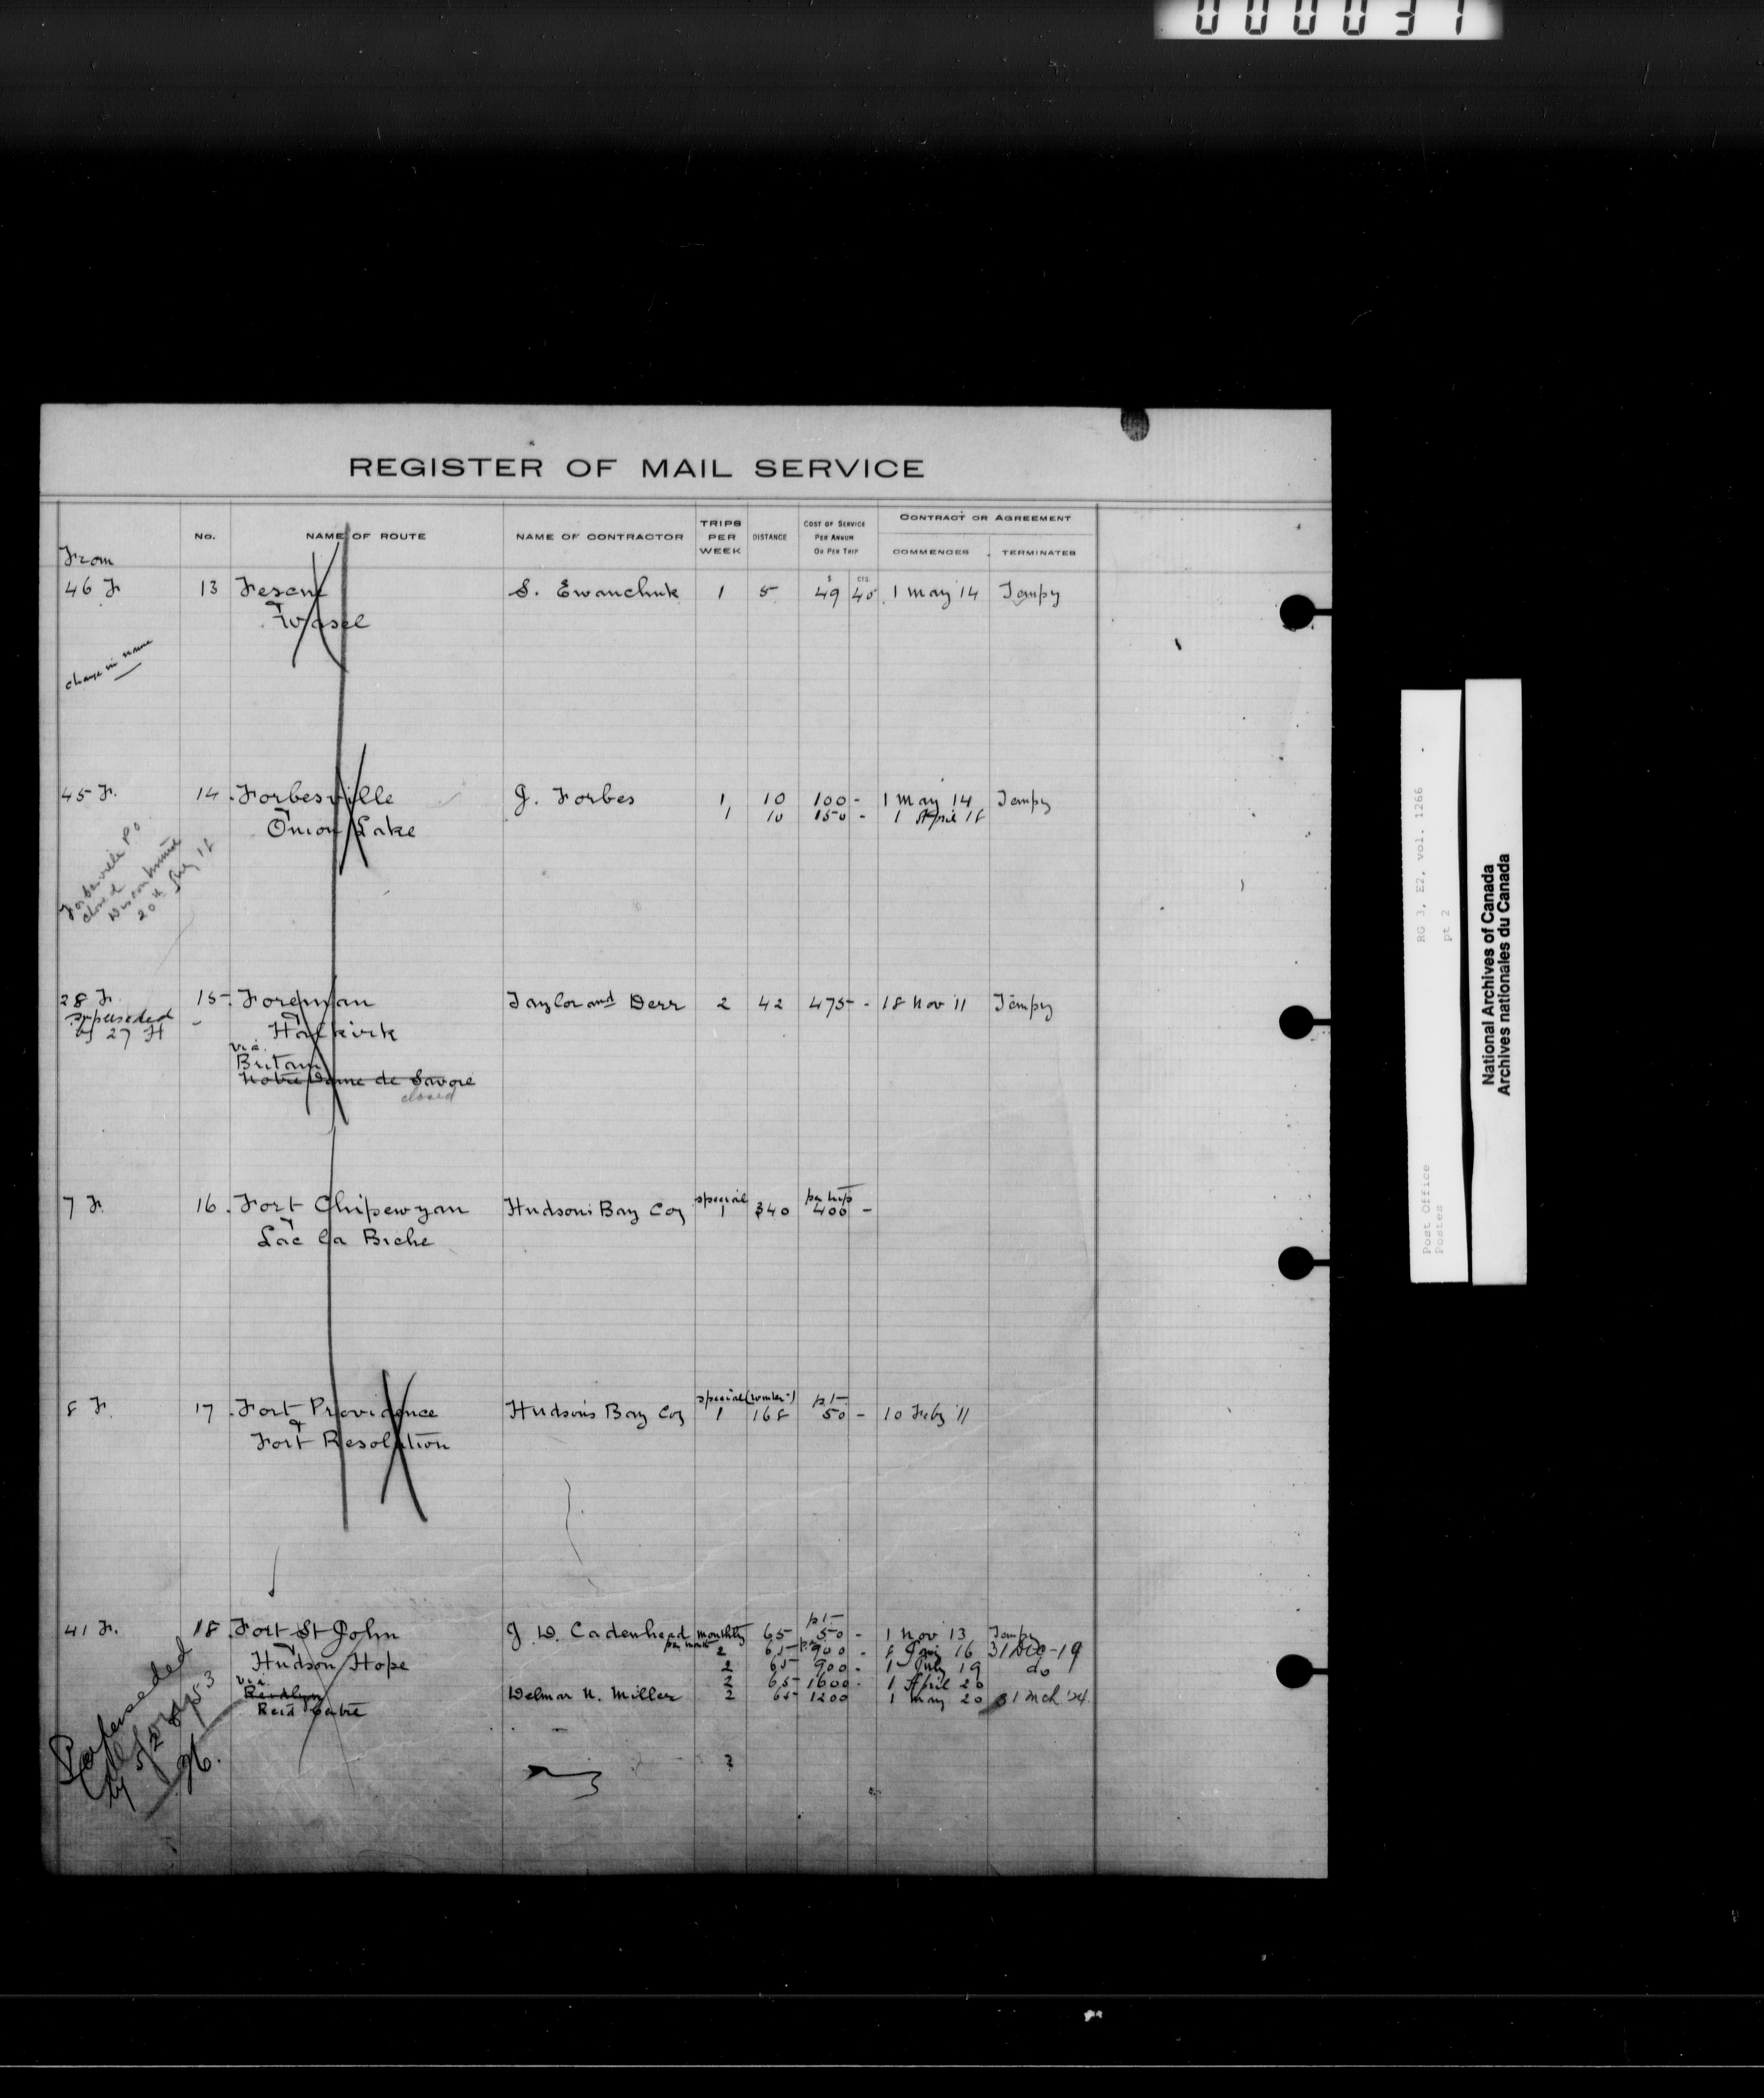 000037
REGISTER OF MAIL SERVICE
From No. NAME OF ROUTE NAME OF CONTRACTOR TRIPS PER WEEK DISTANCE COST OF SERVICE PER ANNUM OR PER TRIP CONTRACT OR AGREEMENT COMMENCES TERMINATES
$ CTS.
46 F 13 Fesen S. Ewanchuk 1 5 49 40 1 May 14 Tempy
& Wasel
change in name
45 F. 14. Forbesville J. Forbes 1 10 100 - 1 May 14 Tempy
& Onion Lake 1 10 150 - 1 April 18
Forbesville PO
closed
Discontinued
20th July 18
28 F. 15. Foreman Taylor and Derr 2 42 475 - 18 Nov 11 Tempy
superseded
by 27 H
& Halkirk
via
Britain
Notre Dame de Savoie
closed
special per trip
7 F. 16. Fort Chipewyan Hudsons Bay Coy 1 340 400 -
& Lac la Biche
special (winter) p.t.
8 F. 17. Fort Providence Hudsons Bay Coy 1 168 50 - 10 Feby 11
&
Fort Resolution
p.t.
41 F. 18. Fort St John J. D. Cadenhead monthly 65 50 - 1 Nov 13 Tempy
per month 2 65 900 - 31 Dec - 19
& Hudson Hope 2 65 900 - 1 July 19 do
via 2 65 1600 - 1 April 20
Delmar N. Miller 2 65 1200 1 May 20 31 Mch 24
Reid
Superseded
by
26.
3
RG 3, E2, vol. 1266
pt 2
Post Office
Postes
National Archives of Canada
Archives nationales du Canada